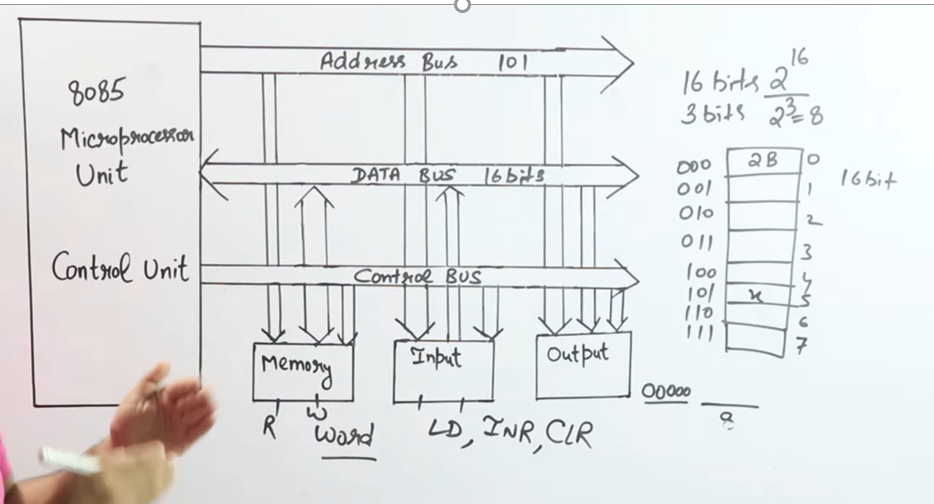 8085
Microprocessor
Unit
Control Unit
Address Bus 101
DATA BUS 16 bits
Control BUS
Memory
Input
Output
R W
Word
LD, INR, CLR
16 bits 2^16
3 bits 2^3=8
000 2B 0
001 1
010 2
011 3
100 4
101 x 5
110 6
111 7
16 bit
00000
8